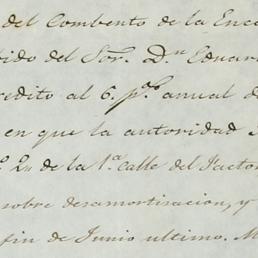 del Combento de la Enca
bido del Sor. Dn Eduar
redito al 6. p%o anual d
en que la autoridad
o 2n de la 1a calle del Factor
sobre desamortisacion, y
fin de Junio ultimo. M